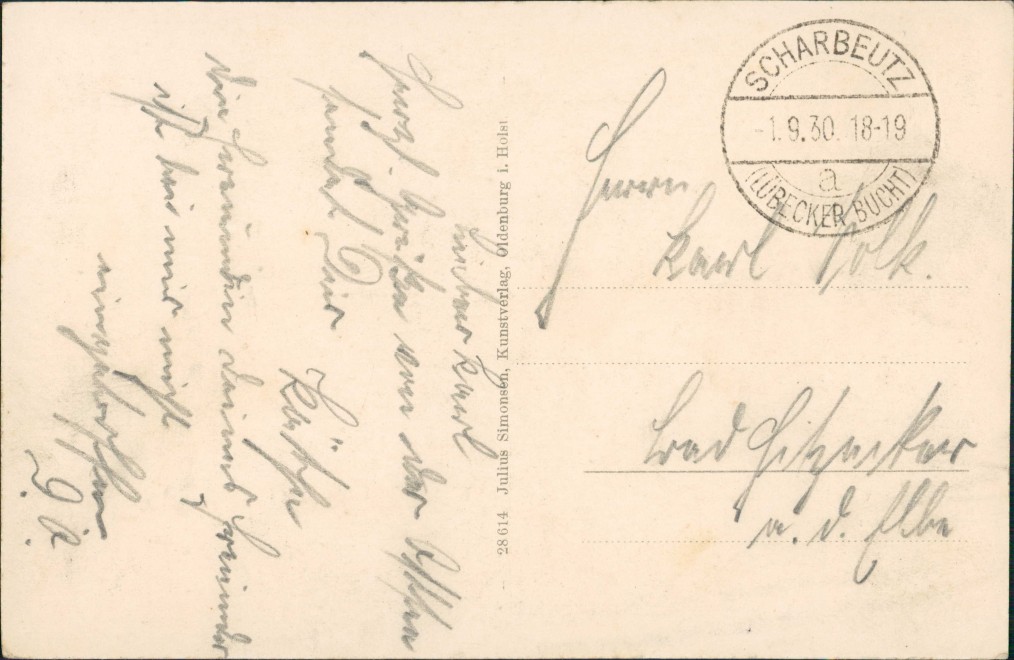 SCHARBEUTZ
-1.9.30. 18-19
a
(LÜBECKER BUCHT)
Herrn
Karl Volk.
Bad Hitzacker
a. d. Elbe
28614 Julius Simonsen, Kunstverlag, Oldenburg i. Holst
Lieber Karl
Herzl. Grüße von der Ostsee
sendet Dir
Käthe
Die Freundin deiner Freundin
ist bei mir nicht
eingetroffen